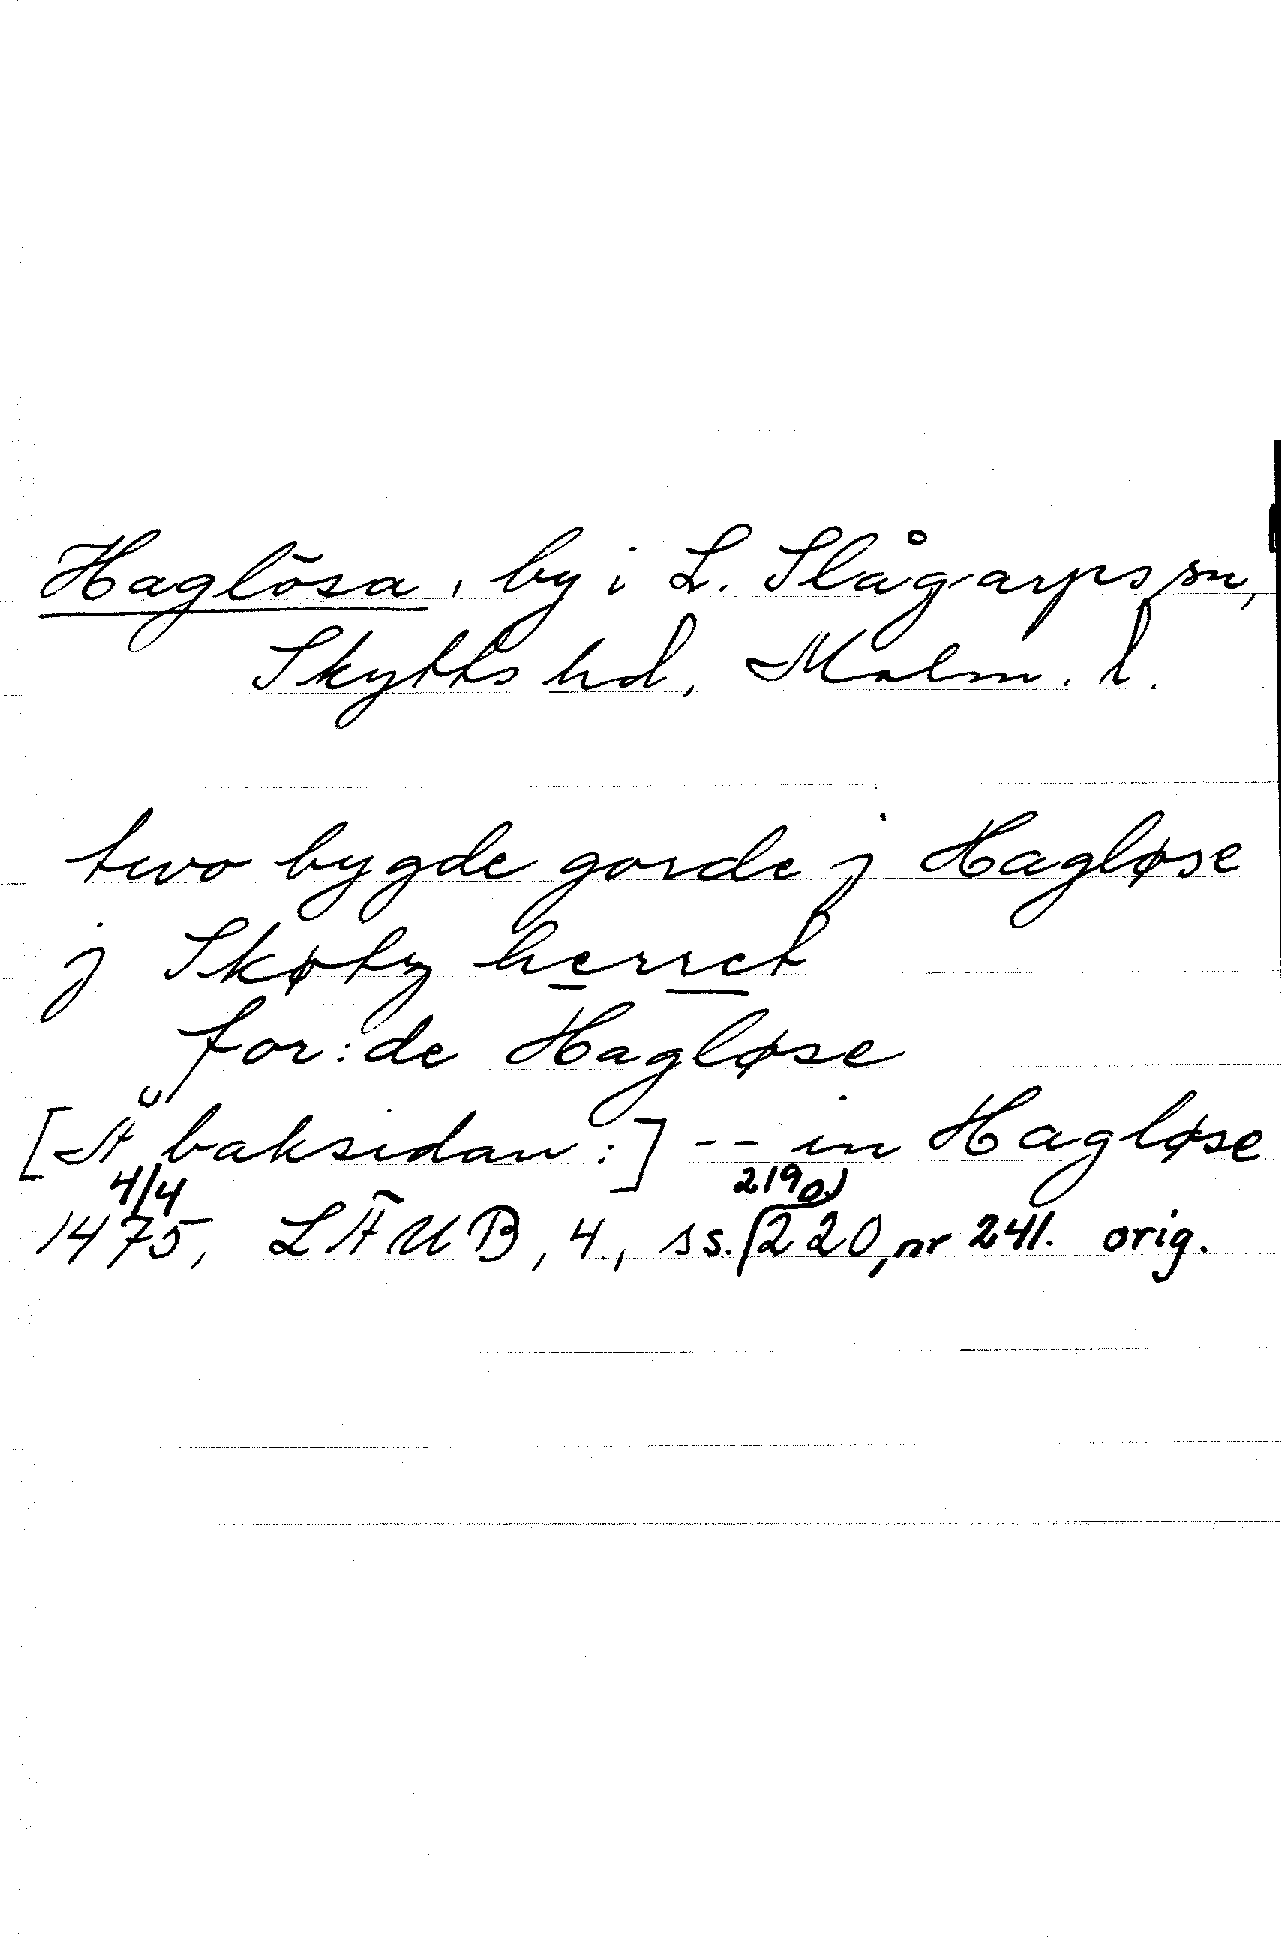 Haglösa, by i L. Slågarps sn,
Skytts hd, Malm. l.
two bygde gorde j Hagløse
j Skøtz herret
for:de Hagløse
[Å baksidan:] -- in Hagløse
4/4 219 o.
1475, LÄUB, 4, ss. 220, nr 241. orig.